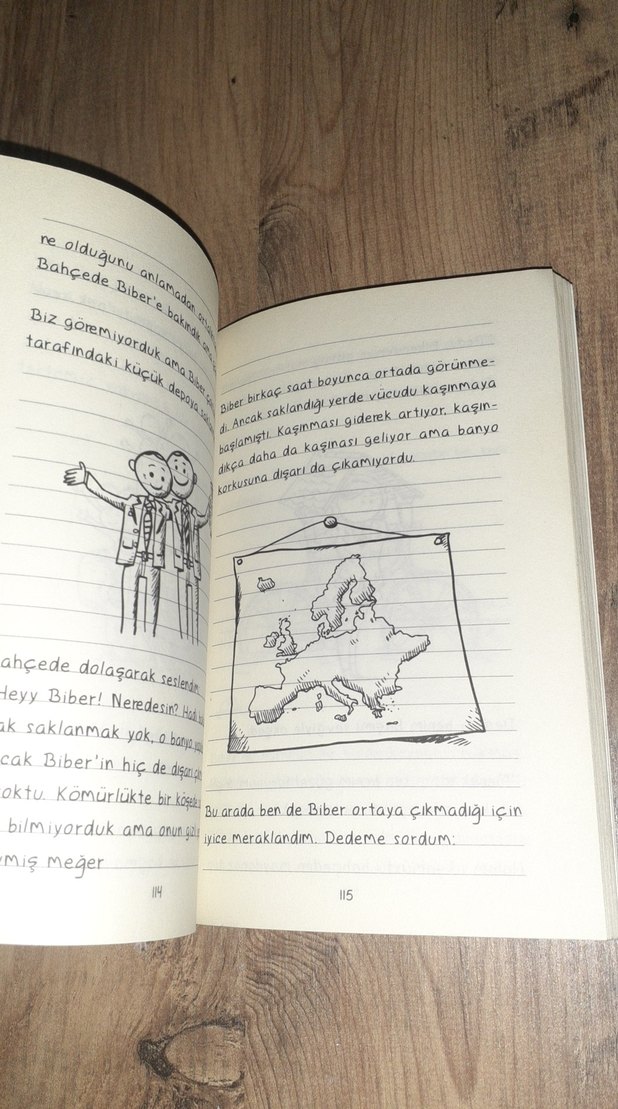 ne olduğunu anlamadan
Bahçede Biber'e bakındık
Biz göremiyorduk ama Biber
tarafındaki küçük depoya
ahçede dolaşarak seslendim
Heyy Biber! Neredesin? Hadi
ak saklanmak yok, o banyo
cak Biber'in hiç de dışarı
oktu. Kömürlükte bir köşede
bilmiyorduk ama onun gizli
ymiş meğer
114
Biber birkaç saat boyunca ortada görünme-
di. Ancak saklandığı yerde vücudu kaşınmaya
başlamıştı. Kaşınması giderek artıyor, kaşın-
dıkça daha da kaşınası geliyor ama banyo
korkusuna dışarı da çıkamıyordu.
Bu arada ben de Biber ortaya çıkmadığı için
iyice meraklandım. Dedeme sordum:
115